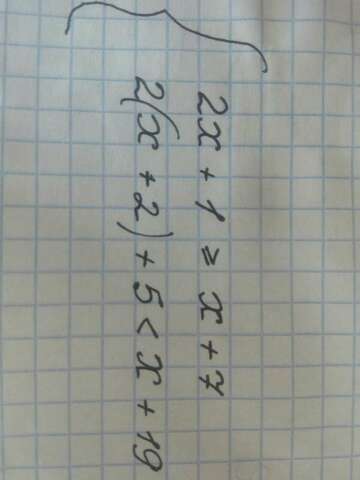 2x + 1 ≥ x + 7
2(x + 2) + 5 < x + 19